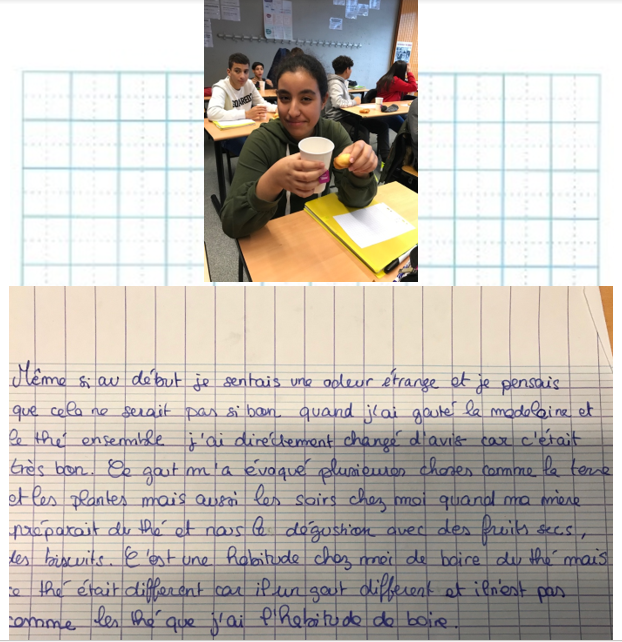 Même si au début je sentais une odeur étrange et je pensais
que cela ne serait pas si bon quand j'ai gouté la madeleine et
le thé ensemble j'ai directement changé d'avis car c'était
très bon. Ce gout m'a évoqué plusieurs choses comme la terre
et les plantes mais aussi les soirs chez moi quand ma mère
préparait du thé et nous le dégustion avec des fruits secs,
des biscuits. C'est une habitude chez moi de boire du thé mais
ce thé était différent car il un gout différent et il n'est pas
comme les thé que j'ai l'habitude de boire.